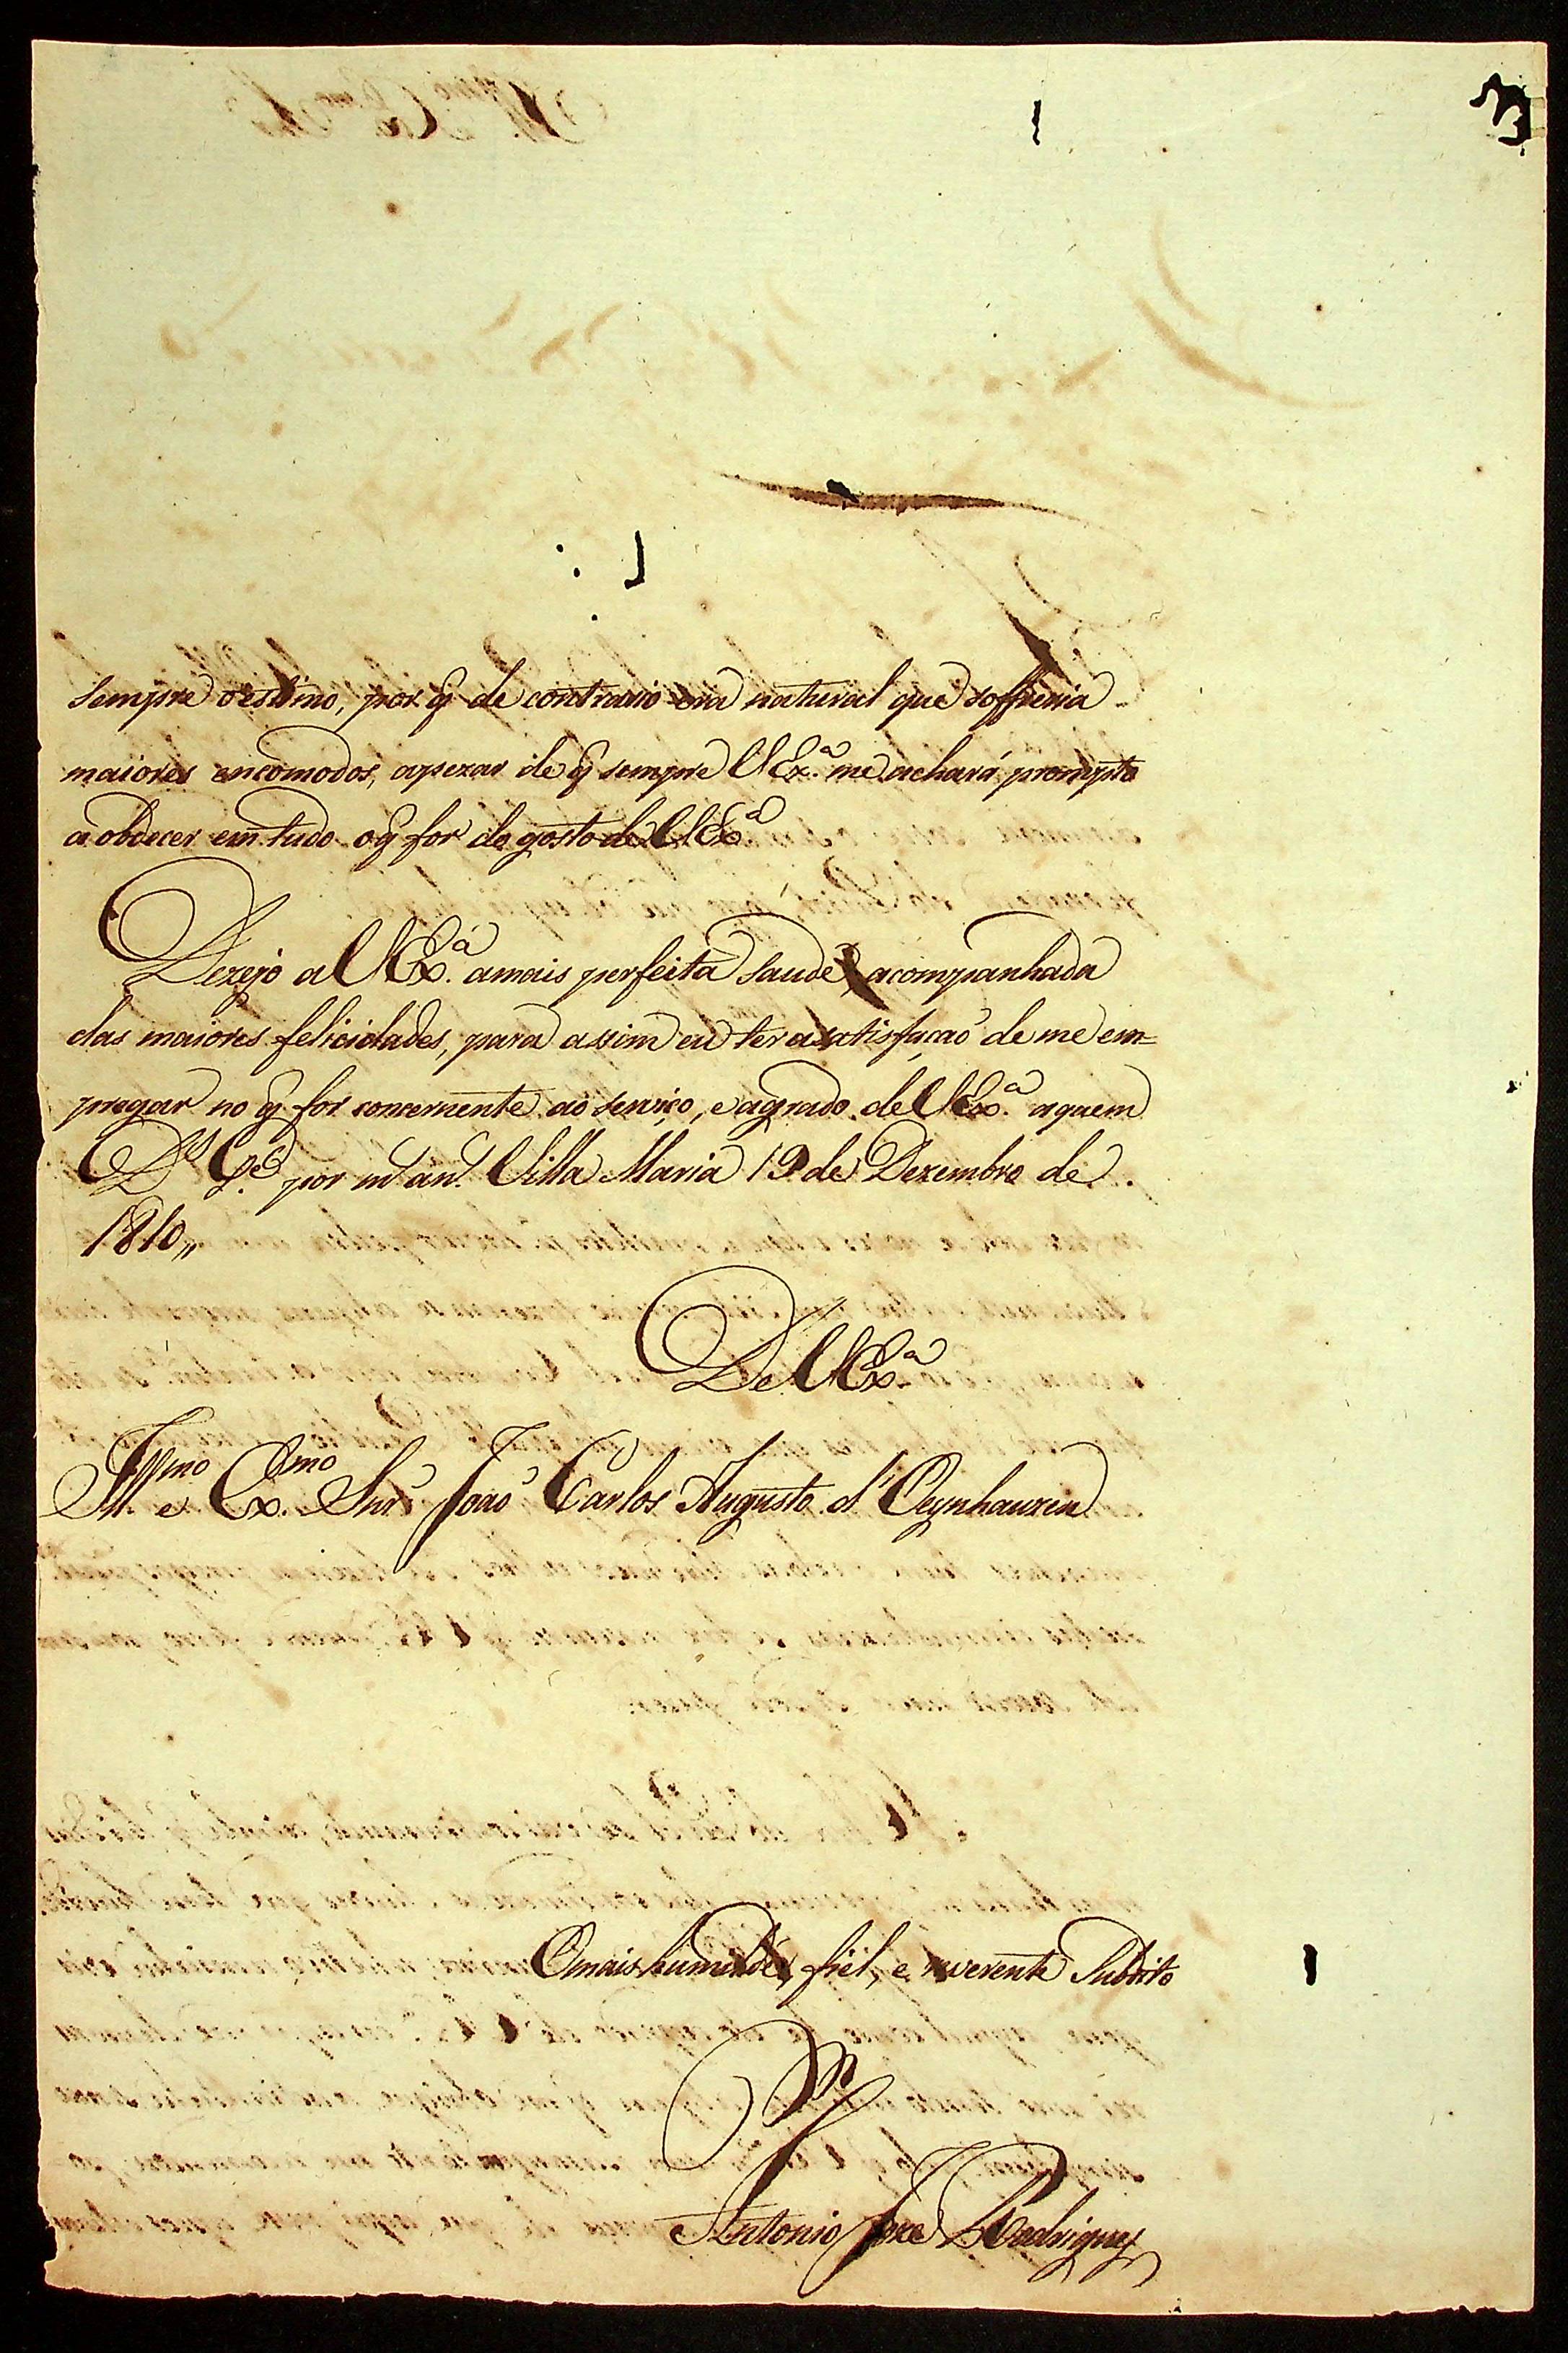 sempre o estimo, por q̃ de contrario era natural que soffreria
maiores encomodos, apezar de q̃ sempre VExª me achará prompto
a obdecer em tudo o q̃ for do gosto de VExª
Dezejo a VExª a mais perfeita saude, acompanhada
das maiores felicidades, para assim eu ter a satisfação de me em=
pregar no q̃ for concernente ao serviço, e agrado de VExª a quem
Ds Gde por ms ans Villa Maria 19 de Dezembro de
1810,,
De VExª
Illmo e Exmo Snr João Carlos Augusto d'Oeynhauzen
O mais humilde, fiel, e reverente Subdito
Antonio Joze Rodrigues